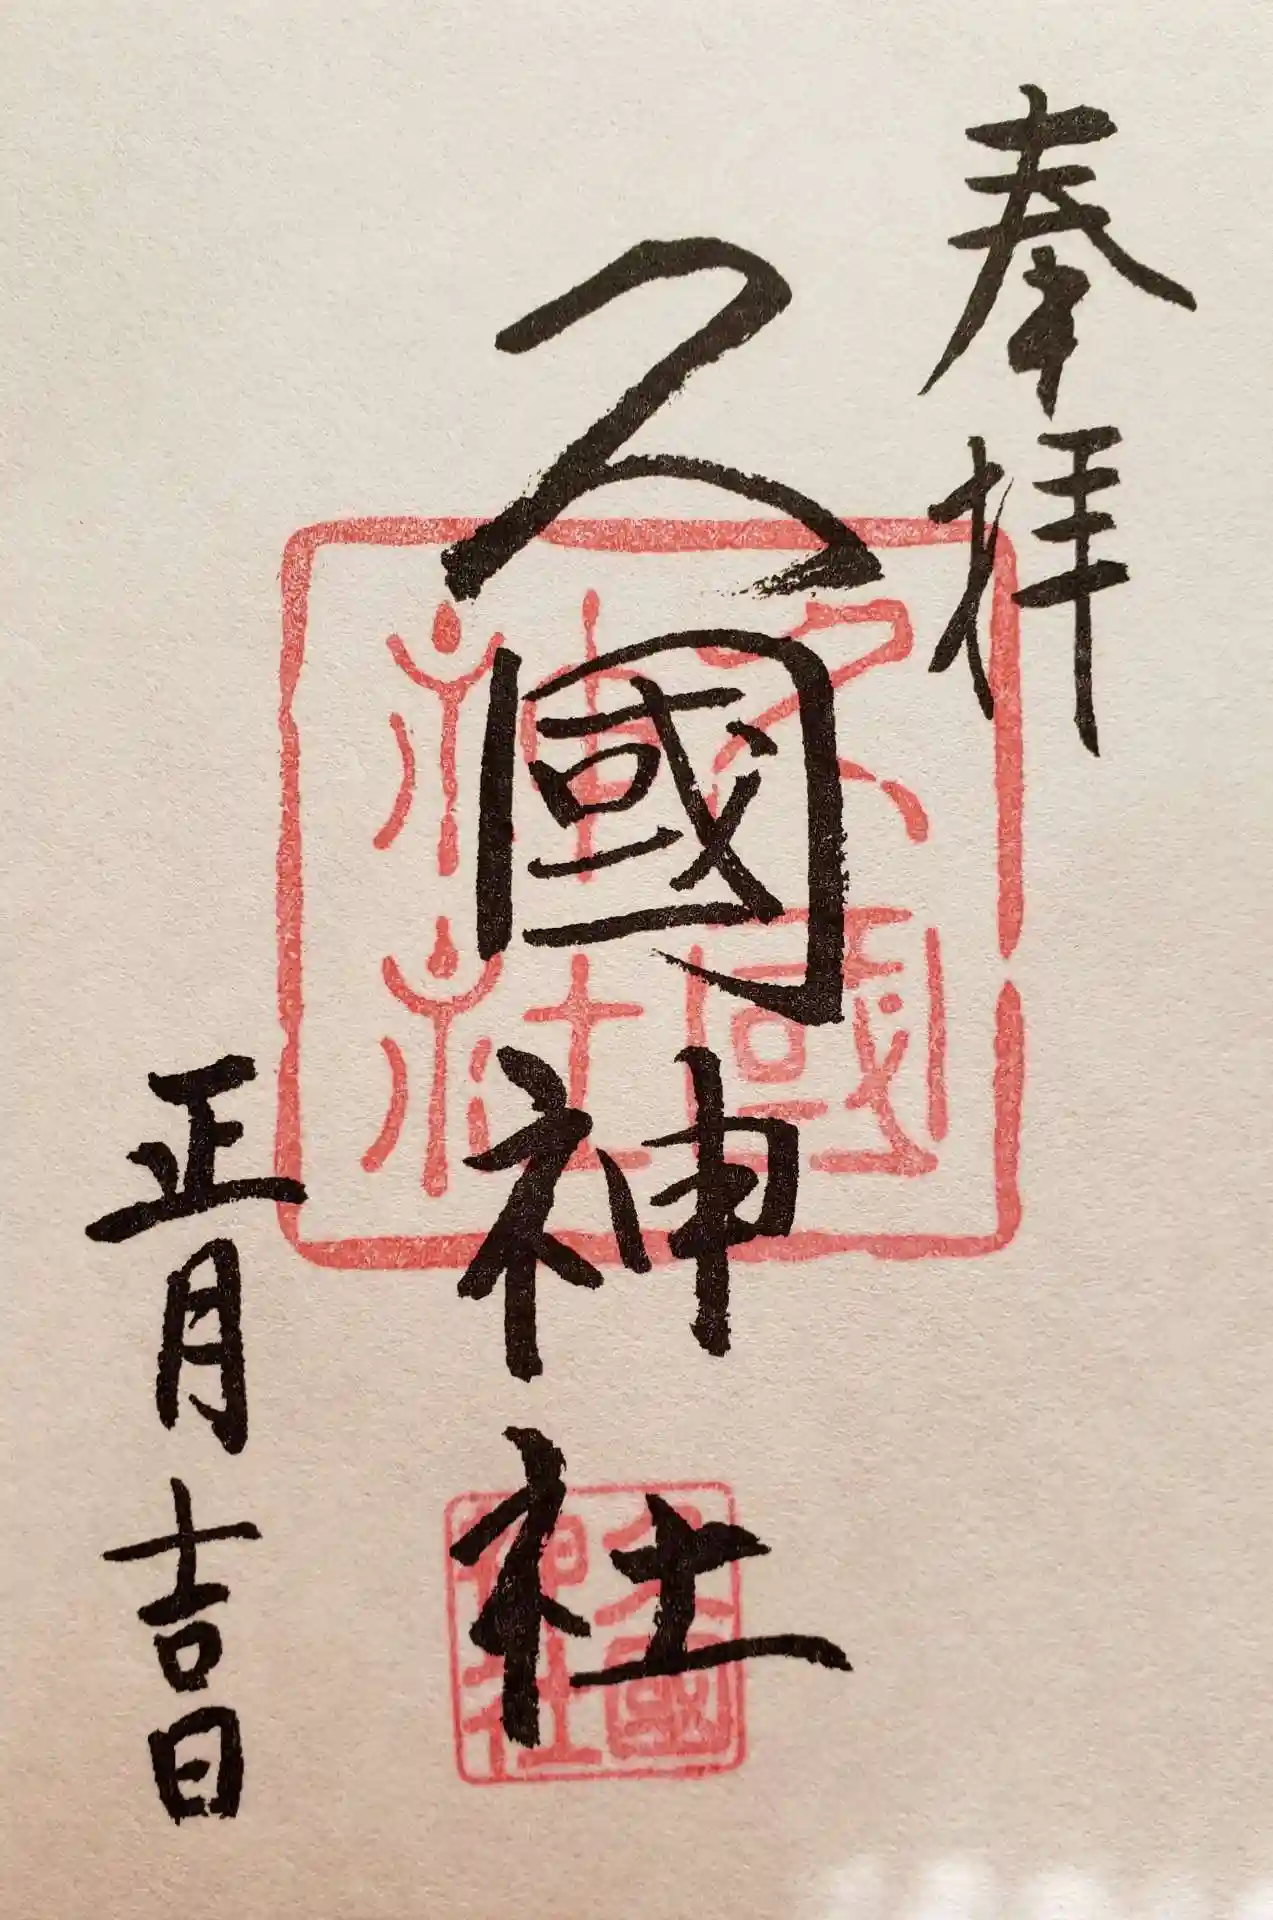 奉拝
久國神社
正月吉日
久國神社
久國神社